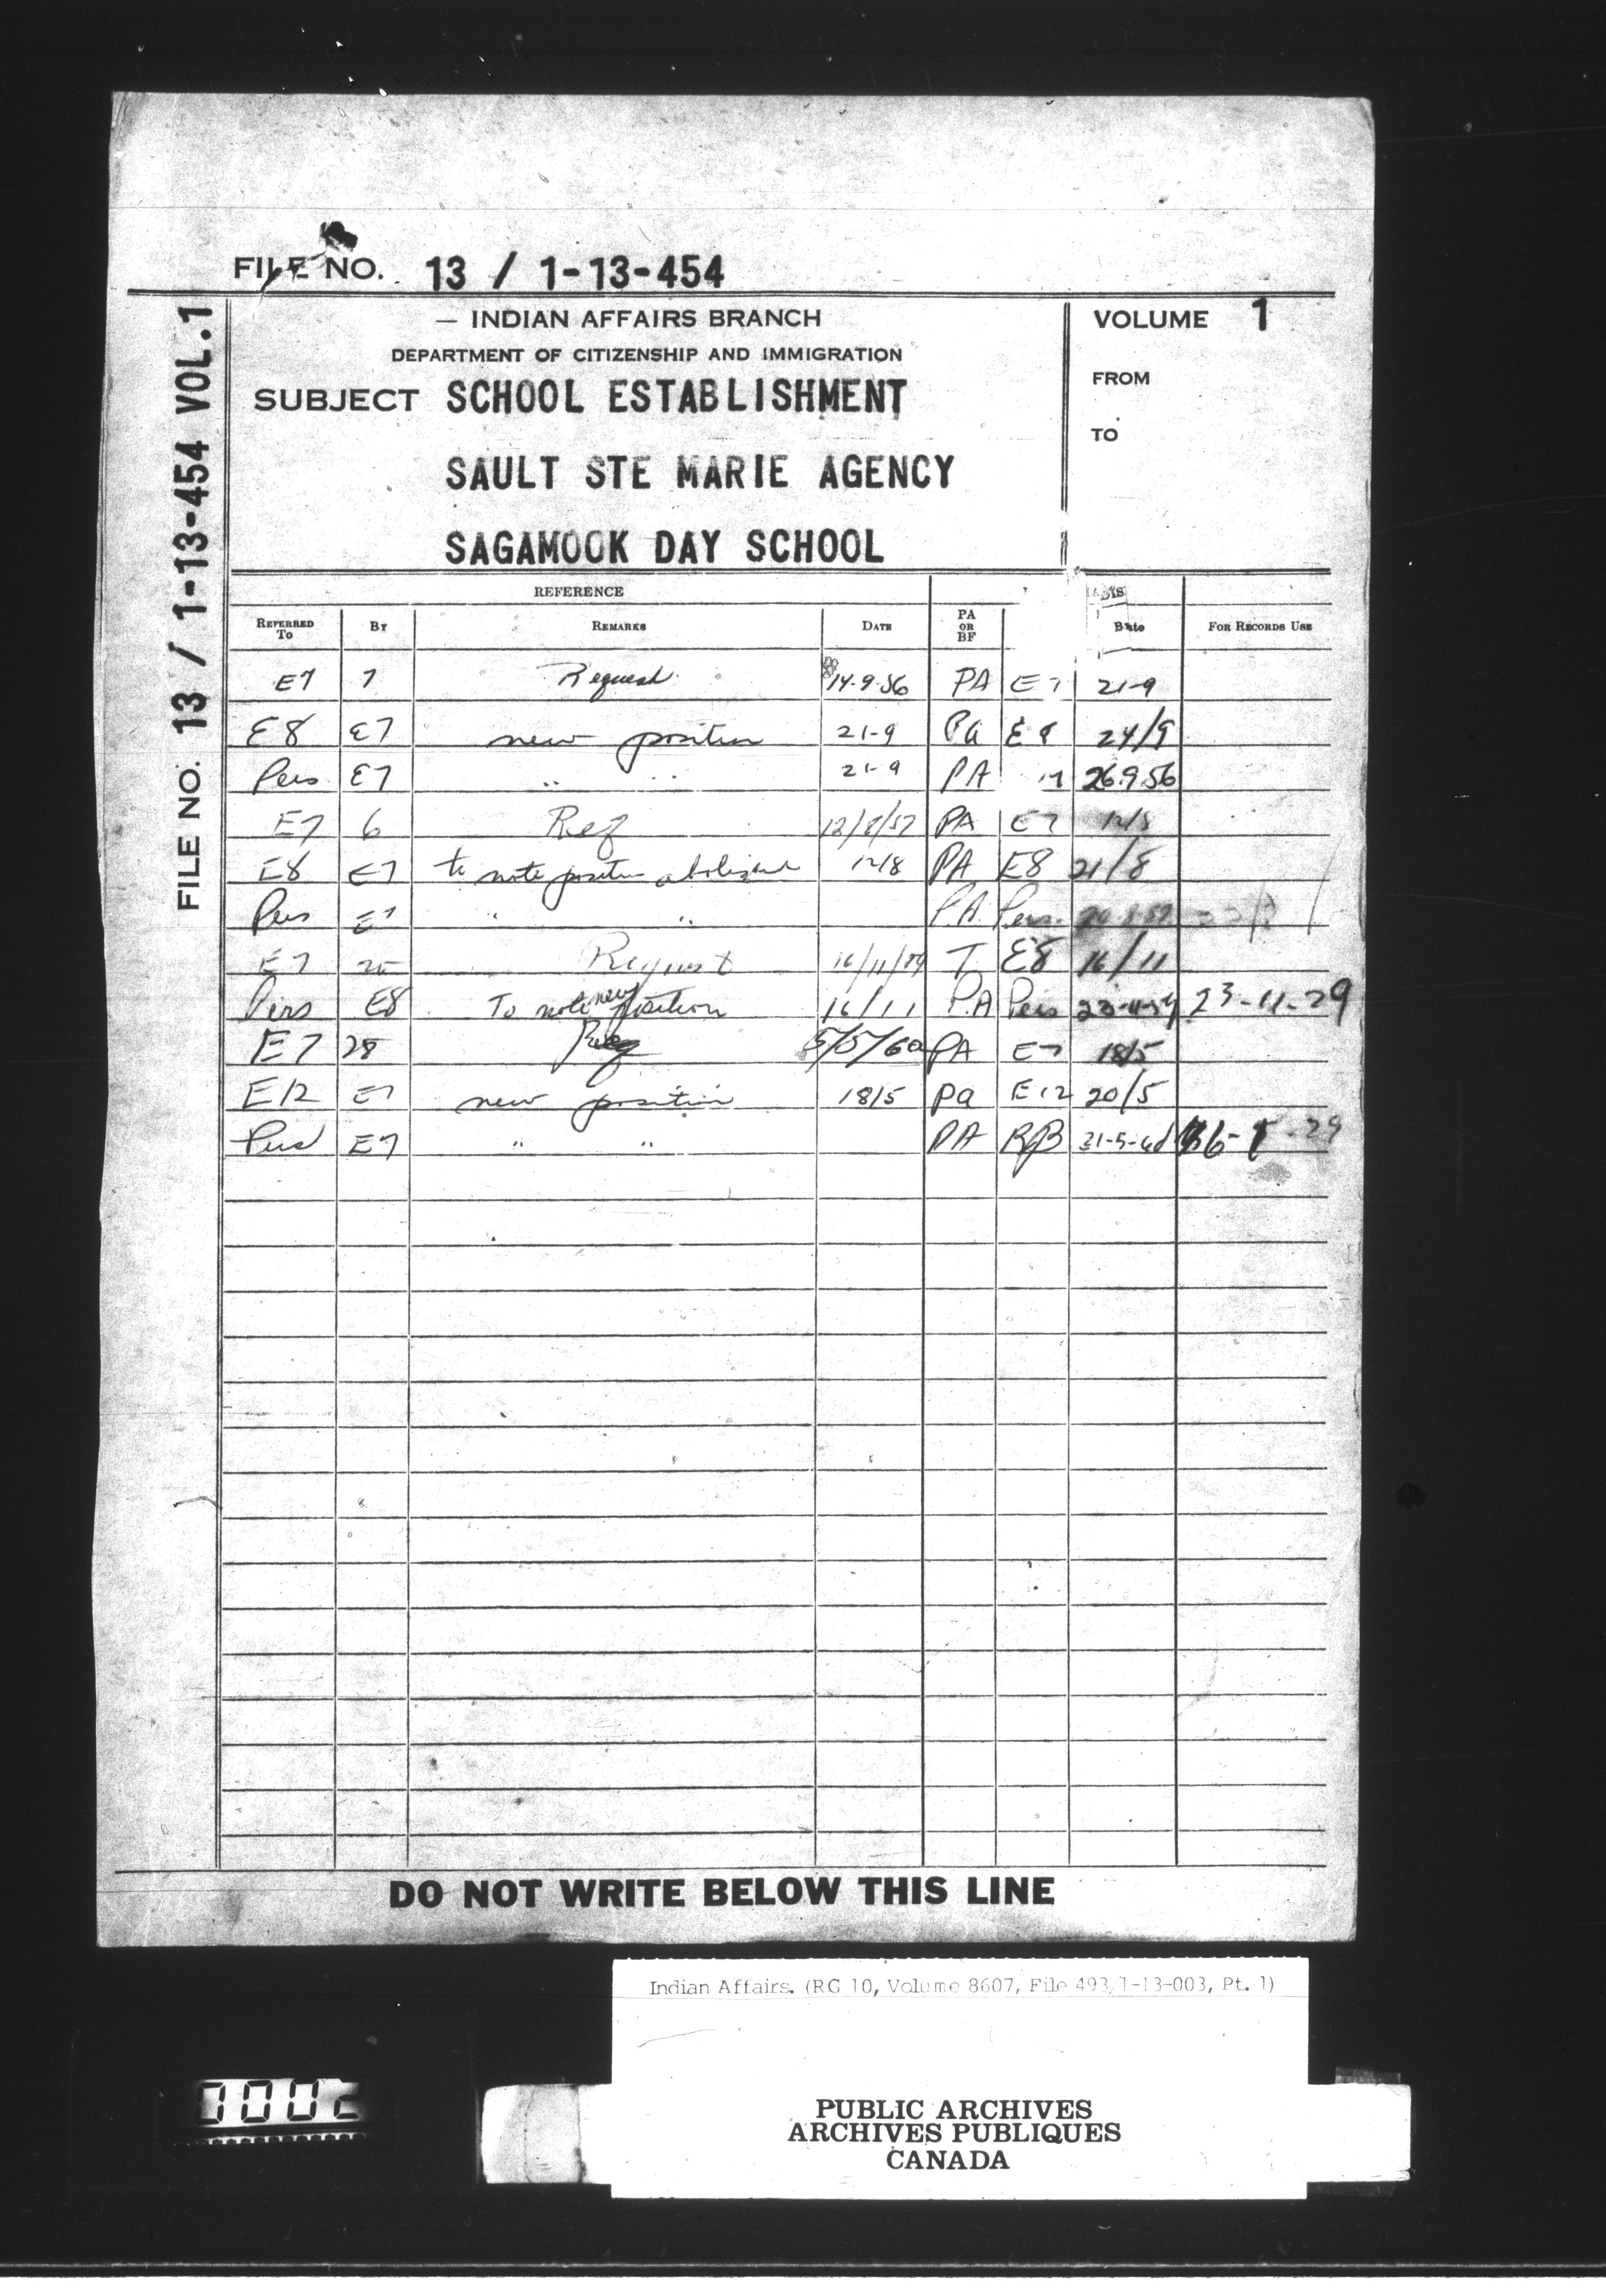 FILE NO. 13 / 1-13-454
FILE NO. 13 / 1-13-454 VOL.1
— INDIAN AFFAIRS BRANCH
DEPARTMENT OF CITIZENSHIP AND IMMIGRATION
SUBJECT SCHOOL ESTABLISHMENT
SAULT STE MARIE AGENCY
SAGAMOOK DAY SCHOOL
VOLUME 1
FROM
TO
REFERENCE
REFERRED TO BY REMARKS DATE PA OR BF Date FOR RECORDS USE
E7 7 Request 14-9-56 PA E7 21-9
E8 E7 new position 21-9 Pa E8 24/9
Pers E7 " " 21-9 PA 26.9.56
E7 6 Req 12/8/57 PA E7 12/8
E8 E7 to note position abolished 12/8 PA E8 21/8
Pers E7 " " P.A. Pers.
E7 25 Request 16/11/59 T E8 16/11
Pers E8 To note new position 16/11 P.A Pers 23-11-59 23-11-29
E7 28 Req 5/5/60 PA E7 18/5
E12 E7 new position 18/5 Pa E12 20/5
Pers E7 " " PA RB 31-5-60
DO NOT WRITE BELOW THIS LINE
Indian Affairs. (RG 10, Volume 8607, File 493/1-13-003, Pt. 1)
0002
PUBLIC ARCHIVES
ARCHIVES PUBLIQUES
CANADA